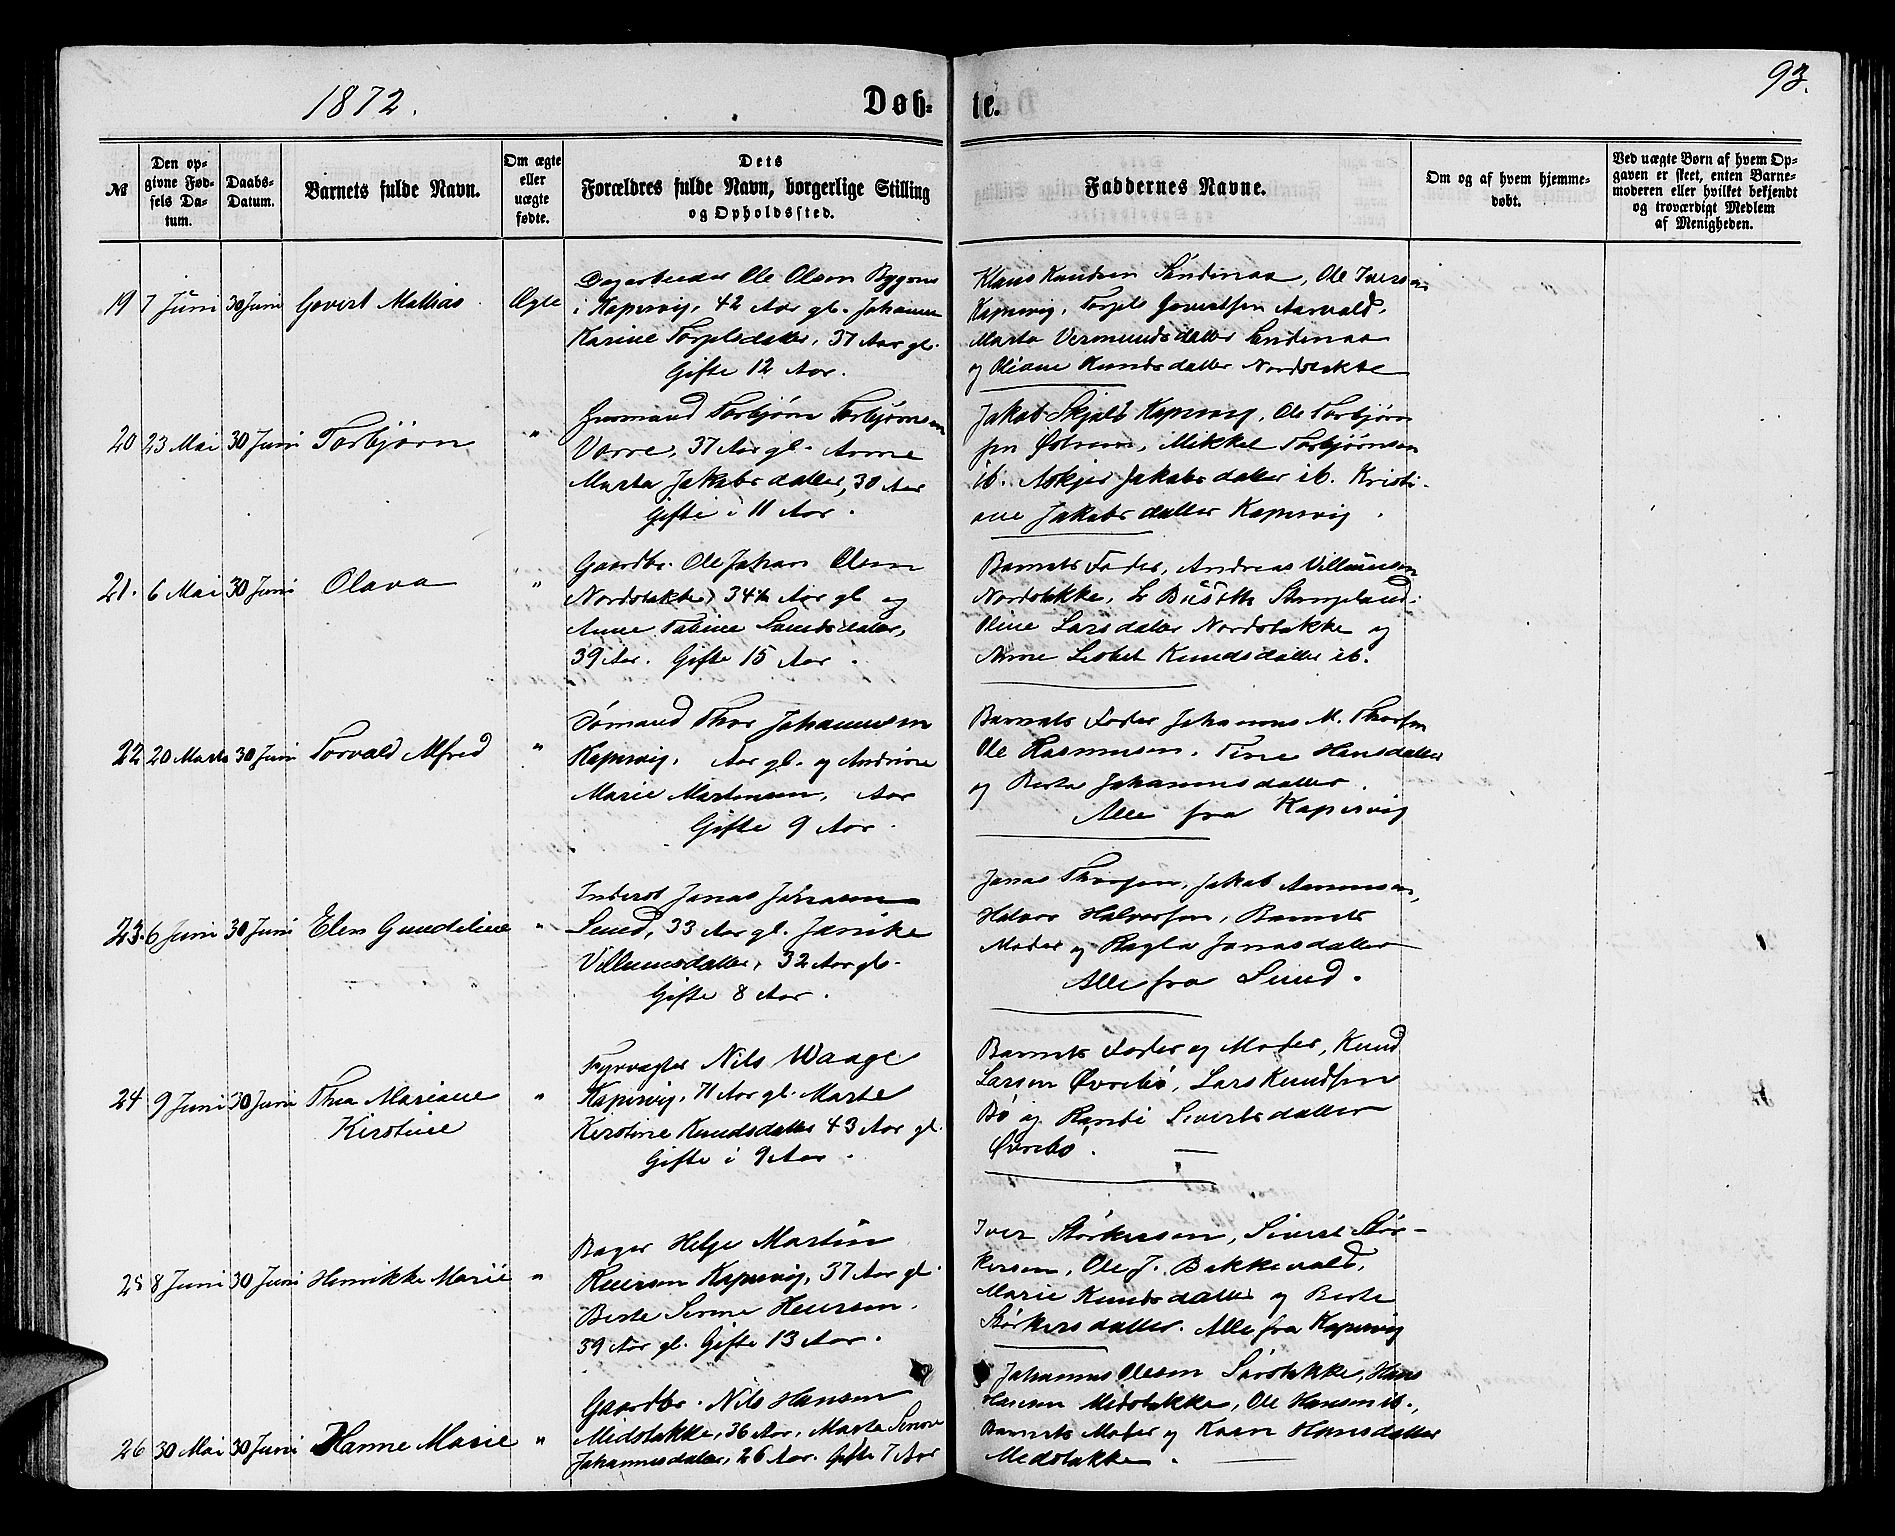 1872.
Døb-
te.
93.
№
Den op-
givne Fød-
sels Da-
tum.
Daabs-
Datum.
Barnets fulde Navn.
Om ægte
eller
uægte
fødte.
Dets
Forældres fulde Navn, borgerlige Stilling
og Opholdssted.
Faddernes Navne.
Om og af hvem hjemme-
døbt.
Ved uægte Børn af hvem Op-
gaven er skeet, enten Barne-
moderen eller hvilket bekjendt
og troværdigt Medlem
af Menigheden.
19 7 Juni 30 Juni Govert Mathias Ægte
Dagarbeider Ole Olsen Bygnes
i Kapervig, 42 Aar gl. Johanne
Karine Torjelsdatter, 37 Aar gl.
Gifte 12 Aar.
Klaus Knudsen Sundenaa, Ole Iversen
Kapervig, Torjels Govertsen Aarvald,
Marta Vermundsdatter Sundenaa
og Oliane Knudsdatter Nordstokke
20 23 Mai 30 Juni Torbjørn "
Husmand Torbjørn Torbjørnsen
Vorre, 37 Aar gl. Anne
Marta Jakobsdatter, 30 Aar
Gifte i 11 Aar.
Jakob Skjold Kapervig, Ole Torbjørn
sen Østrem, Mikkel Torbjørnsen
ib. Askjer Jakobsdatter ib. Kristi-
ane Jakobsdatter Kapervig.
21. 6 Mai 30 Juni Olava "
Gaardbr. Ole Johan Olsen
Nordstokke, 34 Aar gl og
Anne Tabine Samdsdatter,
39 Aar. Gifte 15 Aar.
Barnets Fader, Andreas Villumsen
Nordstokke, Stangeland.
Oline Larsdatter Nordstokke og
Anne Lisbet Knudsdatter ib.
22 20 Marts 30 Juni Torvald Alfred "
Sømand Thor Johannesen
Kapervig, Aar gl. og Andrine
Marie Martensen, Aar
Gifte 9 Aar.
Barnets Fader Johannes M. Thorsen
Ole Rasmussen, Tine Hansdatter
og Berta Johannesdatter.
Alle fra Kapervig
23. 6 Juni 30 Juni Elen Gundeline "
Inderst Jonas Johnsen
Sund, 33 Aar gl. Janike
Villumsdatter, 32 Aar gl.
Gifte 8 Aar.
Jonas Thorsen, Jakob Aamundsen,
Halvor Halvorsen, Barnets
Moder og Ragla Jonasdatter
Alle fra Sund.
24 9 Juni 30 Juni Thea Mariane "
Kirstine
Fyrvagter Nils Waage
Kapervig, 71 Aar gl. Marte
Kirstine Knudsdatter 43 Aar gl.
Gifte i 9 Aar.
Barnets Fader og Moder, Knud
Larsen Øvrebø, Lars Knudsen
Bø og Randi Sivertsdatter
Øvrebø.
25 8 Juni 30 Juni Henrikke Marie "
Bager Helge Martin
Kapervig, 37 Aar gl.
Berte Serine
39 Aar gl. Gifte 13 Aar.
Iver Størkersen, Sivert Stør-
kersen, Ole J. Bakkevold,
Marie Knudsdatter og Berte
Størkersdatter. Alle fra Kapervig
26 30 Mai 30 Juni Hanne Marie "
Gaardbr. Nils Hansen
Midstokke, 36 Aar, Marta Serine
Johannesdatter, 26 Aar. Gifte 7 Aar
Johannes Olesen Sørstokke, Hans
Hansen Midstokke, Ole Hansen ib.,
Barnets Moder og Karn Hansdatter
Medstokke.